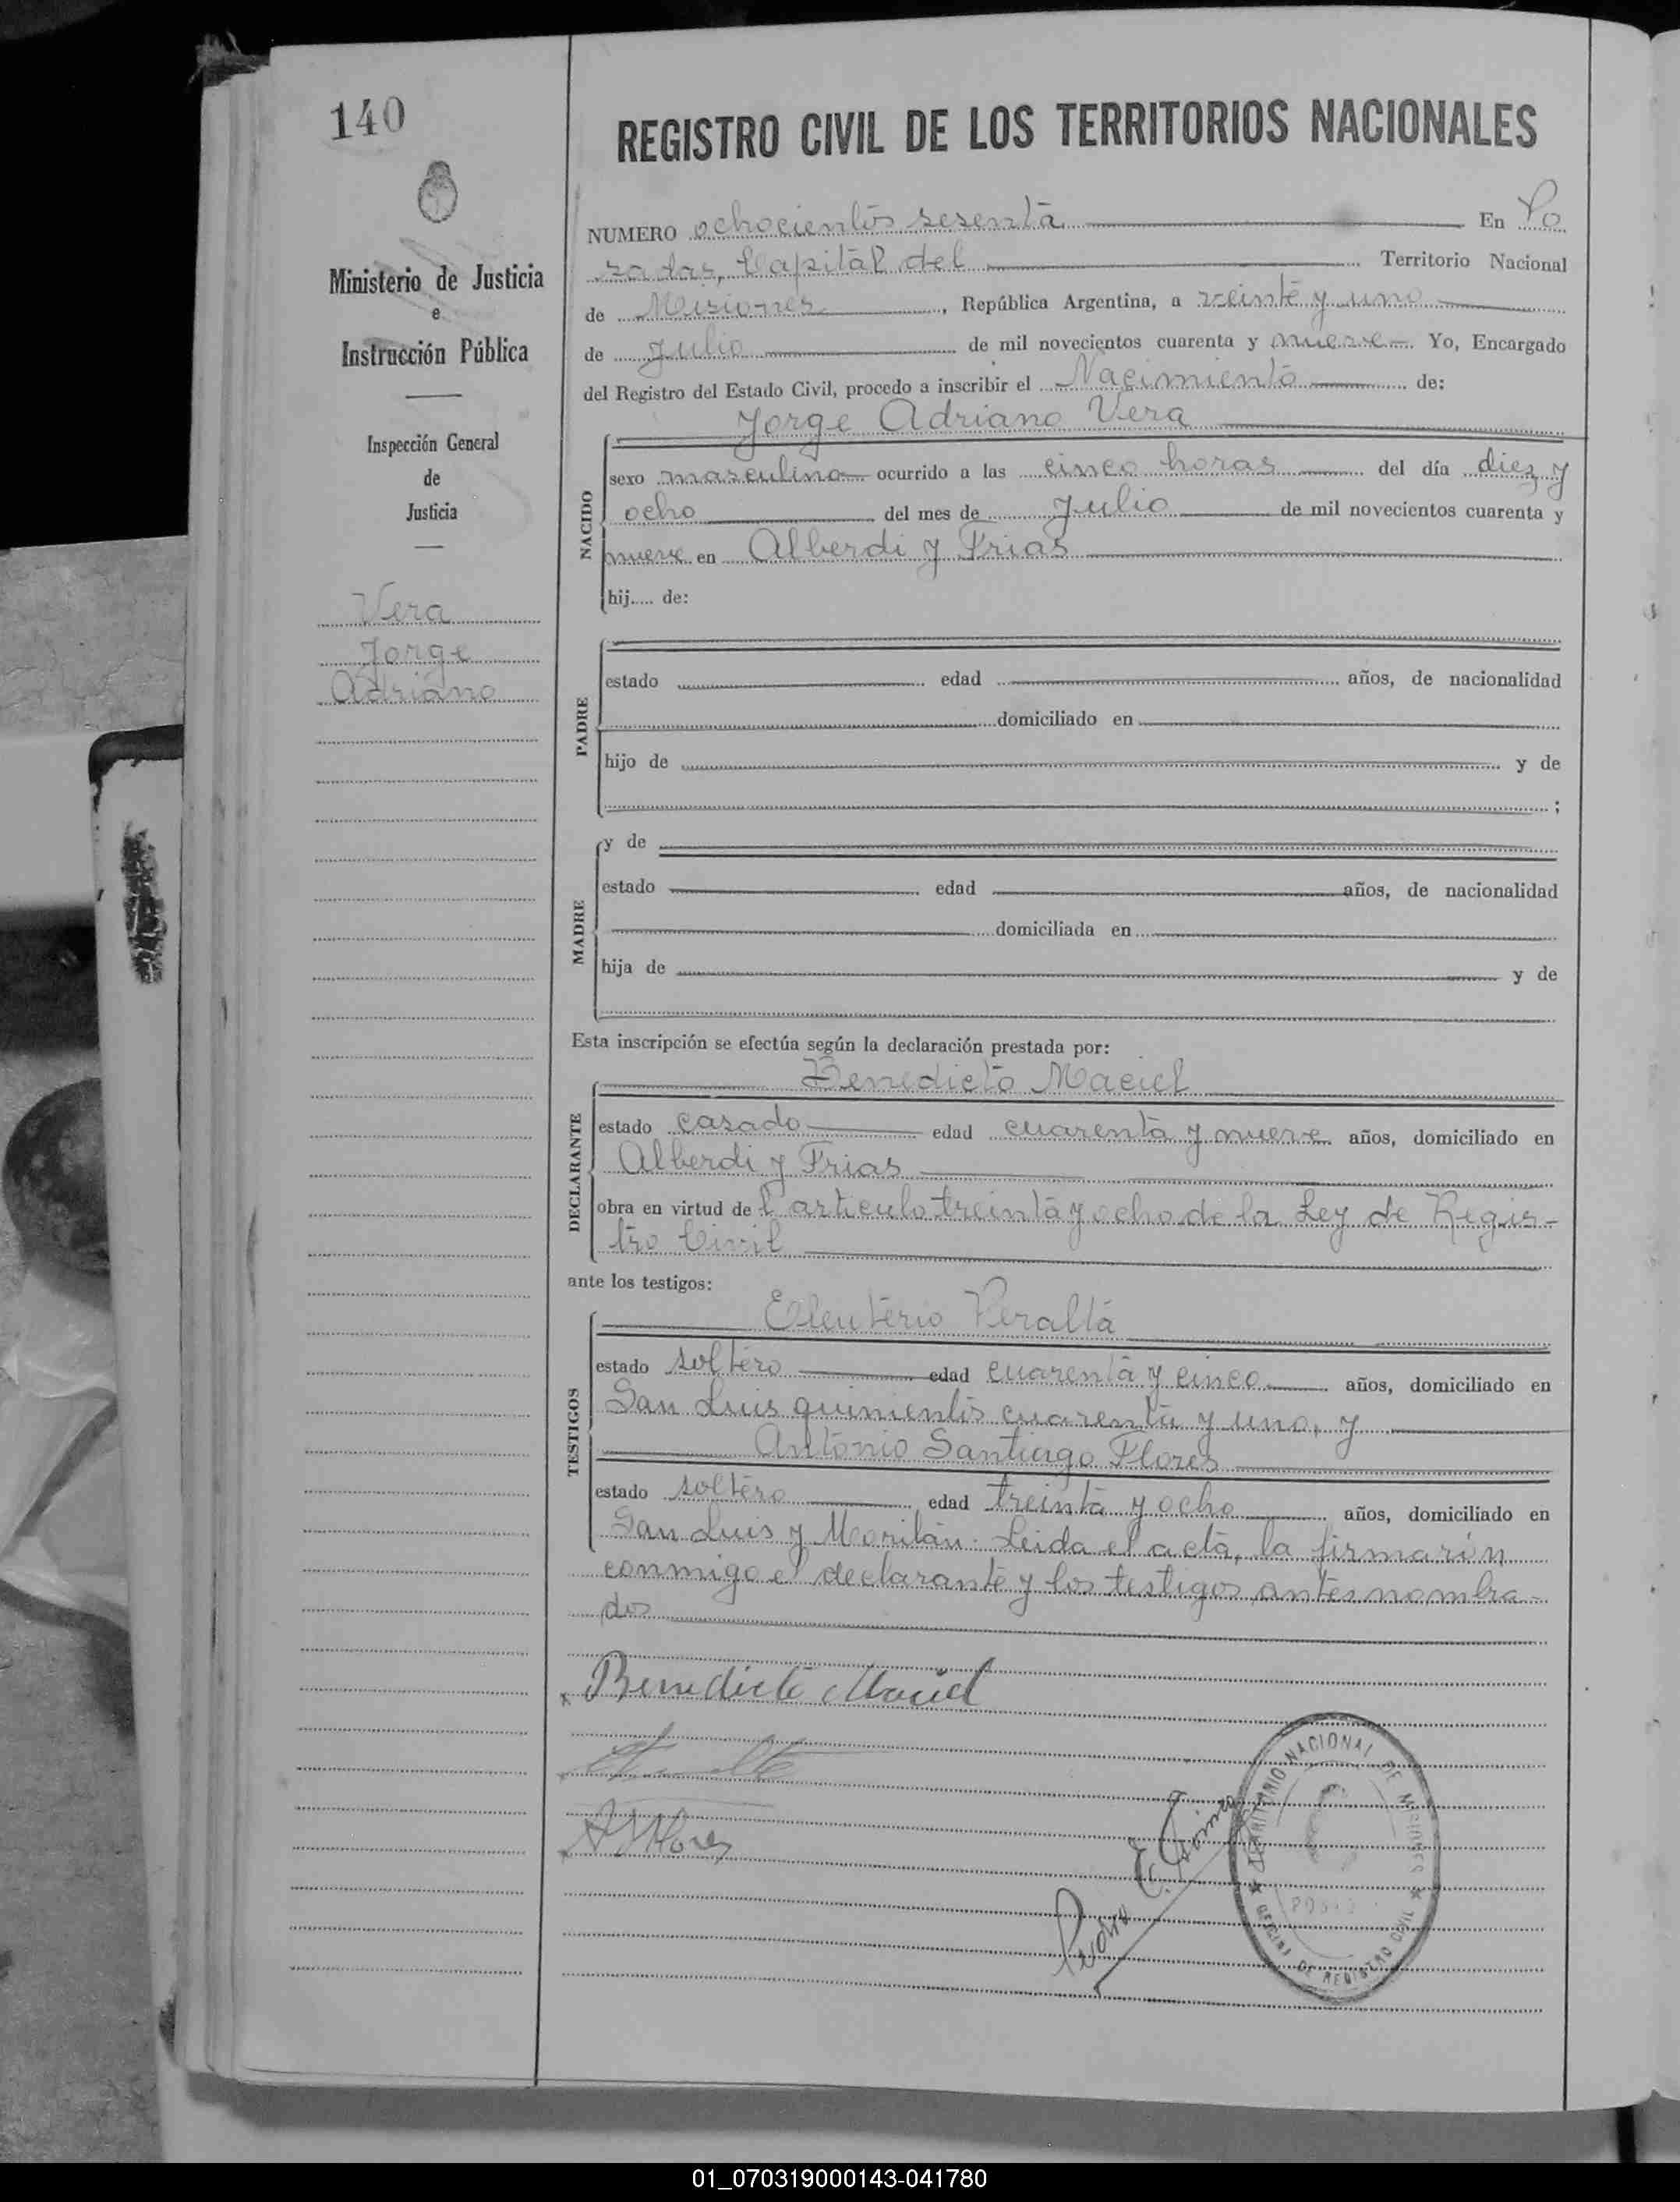 140
Ministerio de Justicia
e
Instrucción Pública
Inspección General
de
Justicia
Vera
Jorge
Adriano
REGISTRO CIVIL DE LOS TERRITORIOS NACIONALES
NUMERO ochocientos sesenta En Po
sadas, Capital del Territorio Nacional
de Misiones, República Argentina, a veinte y uno
de Julio de mil novecientos cuarenta y nueve Yo, Encargado
del Registro del Estado Civil, procedo a inscribir el Nacimiento de:
Jorge Adriano Vera
NACIDO
sexo masculino ocurrido a las cinco horas del día diez y
ocho del mes de Julio de mil novecientos cuarenta y
nueve en Alberdi y Frias
hij..... de:
PADRE
estado edad años, de nacionalidad
domiciliado en
hijo de y de
;
MADRE
y de
estado edad años, de nacionalidad
domiciliada en
hija de y de
Esta inscripción se efectúa según la declaración prestada por:
Benedicto Maciel
DECLARANTE
estado casado edad cuarenta y nueve años, domiciliado en
Alberdi y Frias
obra en virtud de l articulo treinta y ocho de la Ley de Regis-
tro Civil
ante los testigos:
Eleuterio Peralta
TESTIGOS
estado soltero edad cuarenta y cinco años, domiciliado en
San Luis quinientos cuarenta y uno, y
Antonio Santiago Flores
estado soltero edad treinta y ocho años, domiciliado en
San Luis y Morilán. Leida el acta, la firmarón
conmigo el declarante y los testigos antes nombra-
dos
Benedicto Maciel
Flores
Pedro E.
TERRITORIO NACIONAL DE MISIONES
OFICINA DE REGISTRO CIVIL
01_070319000143-041780